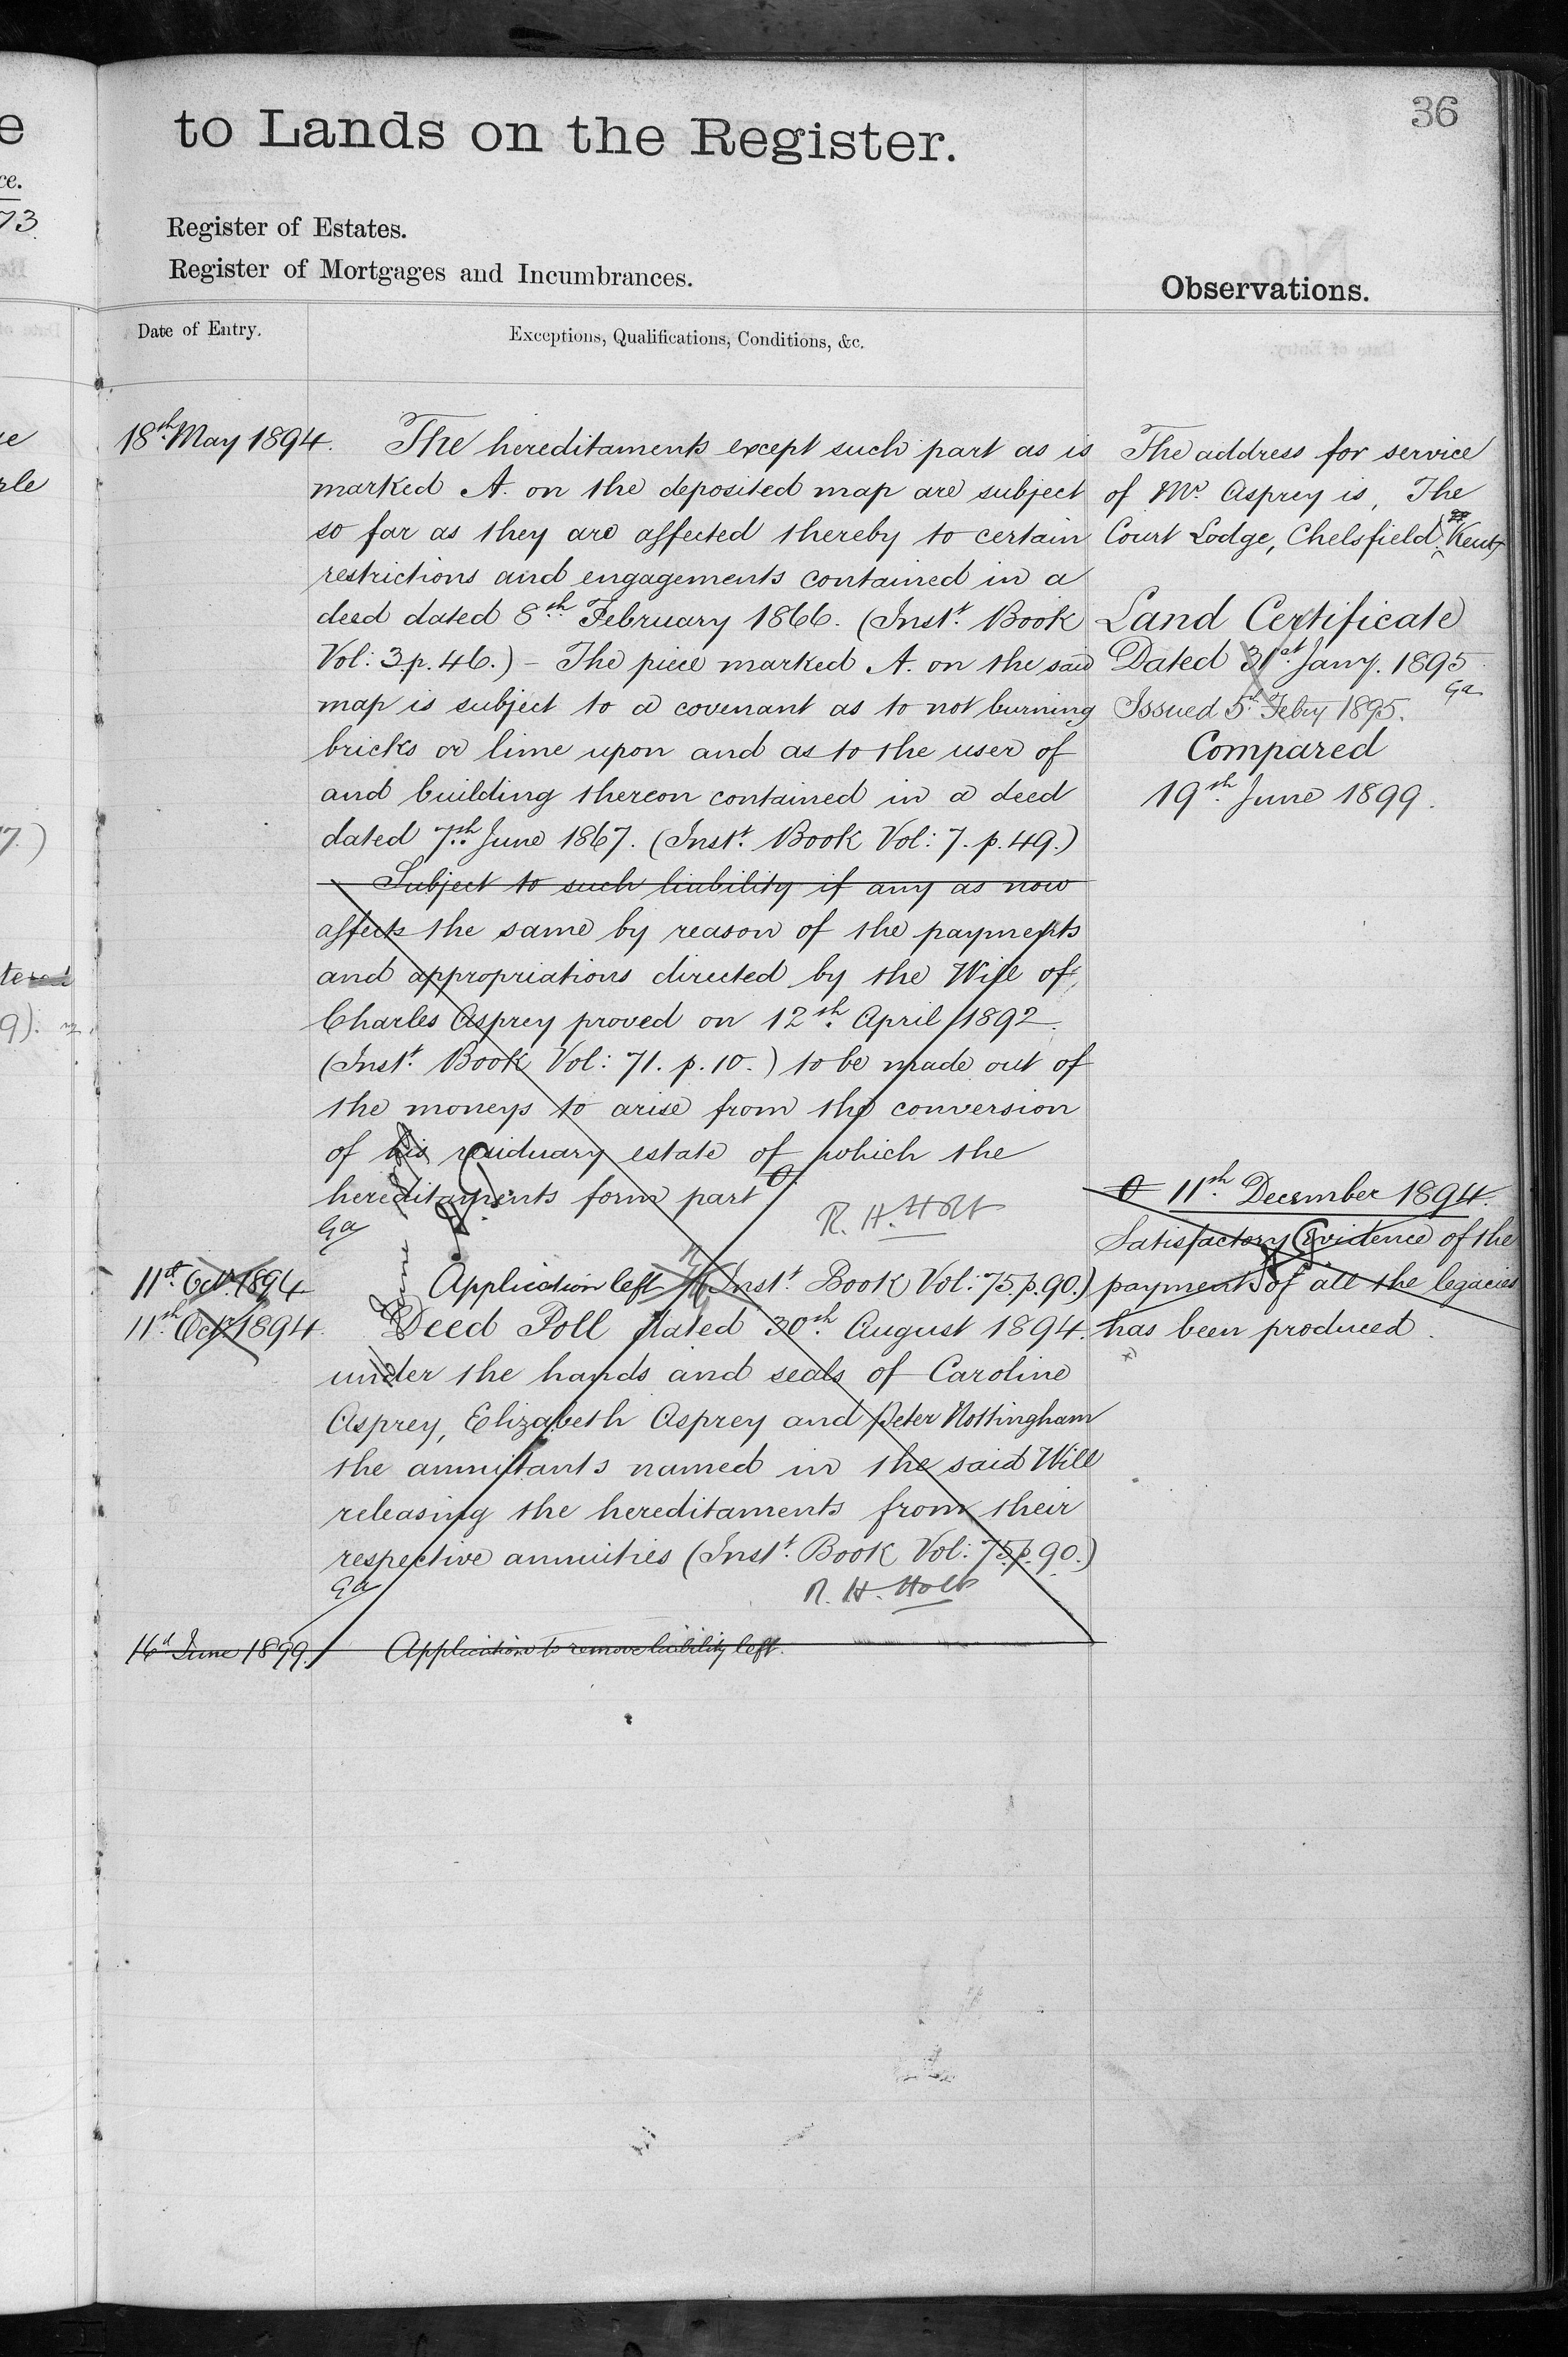 36
to Lands on the Register.
Register of Estates.
Register of Mortgages and Incumbrances.
Observations.
Date of Entry.
Exceptions, Qualifications, Conditions, &c.
18th May 1894.
The hereditaments except such part as is
marked A. on the deposited map are subject
so far as they are affected thereby to certain
restrictions and engagements contained in a
deed dated 8th February 1866. (Instt. Book
Vol: 3 p. 46.) - The piece marked A. on the said
map is subject to a covenant as to not burning
bricks or lime upon and as to the user of
and building thereon contained in a deed
dated 7th June 1867. (Instt. Book Vol: 7. p. 49.)
Subject to such liability if any as now
affects the same by reason of the payments
and appropriations directed by the Will of
Charles Asprey proved on 12th April 1892.
(Instt. Book Vol: 71. p. 10.) to be made out of
the moneys to arise from the conversion
of his residuary estate of which the
hereditaments form part
Ga
R. H. Holt
11th Octr. 1894
Application left (Instt. Book Vol: 75. p. 90.)
11th Octr. 1894
Deed Poll dated 30th August 1894.
under the hands and seals of Caroline
Asprey, Elizabeth Asprey and Peter Nottingham
the annuitants named in the said Will
releasing the hereditaments from their
respective annuities (Instt. Book Vol: 75. p. 90.)
Ga
R. H. Holt
16th June 1899.
Application to remove liability left.
The address for service
of Mr. Asprey is, The
Court Lodge, Chelsfield, Kent
Land Certificate
Dated 31st Jany. 1895
Ga
Issued 5th Febry 1895.
Compared
19th June 1899.
11th December 1894.
Satisfactory Evidence of the
payments of all the legacies
has been produced.
73
7.)
9).